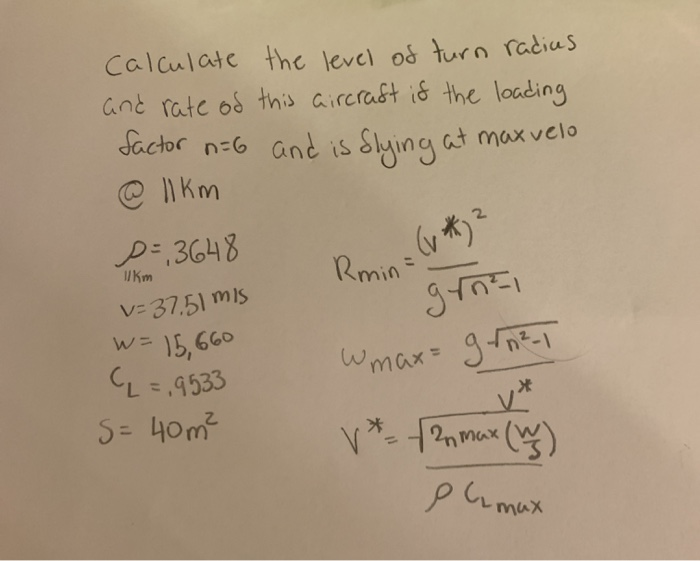 Calculate the level of turn radius
and rate of this aircraft if the loading
factor n=6 and is flying at max velo
@ 11km
ρ=.3648
11km
V=37.51 m/s
W= 15,660
C_L =.9533
S= 40m²
Rmin = (V*)² / g√n²-1
ωmax = g√n²-1 / V*
V* = √2nmax (W/S) / ρ C_L max